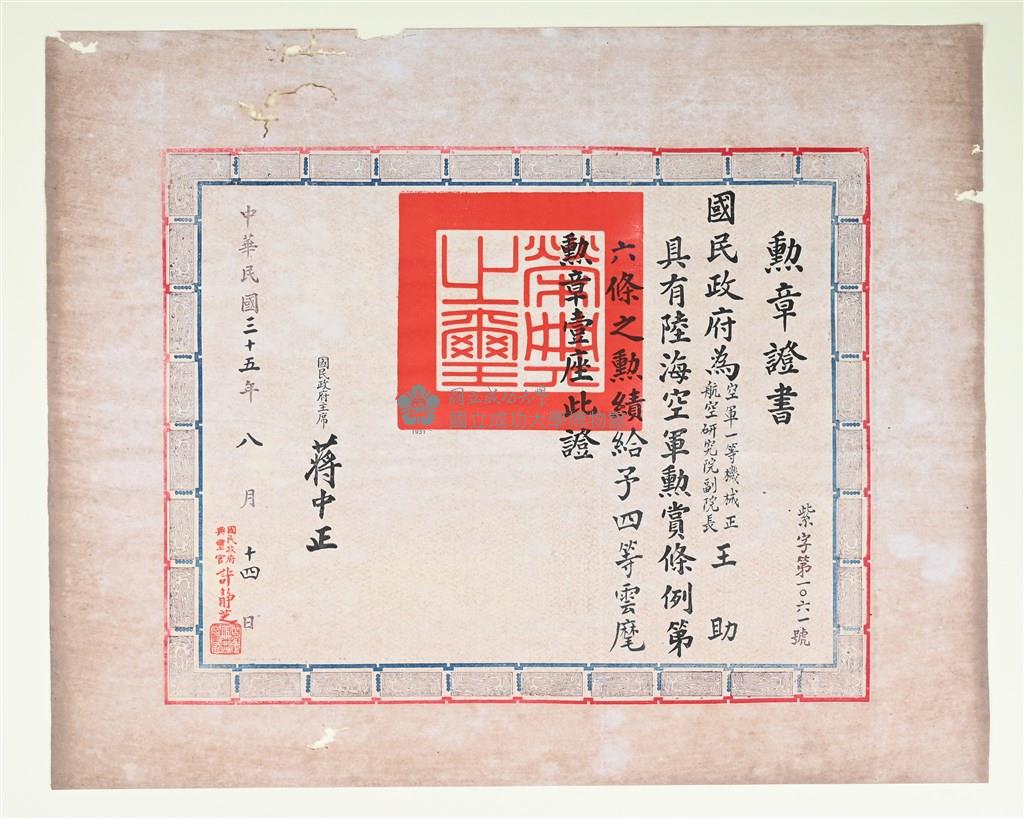 勲章證書
紫字第一〇六一號
國民政府為空軍一等機械正航空研究院副院長王助
具有陸海空軍勲賞條例第
六條之勲績給予四等雲麾
勲章壹座此證
榮典之璽
1931
國民政府主席 蔣中正
中華民國三十五年八月十四日
國民政府典璽官 許靜芝
國立成功大學
國立成功大學博物館